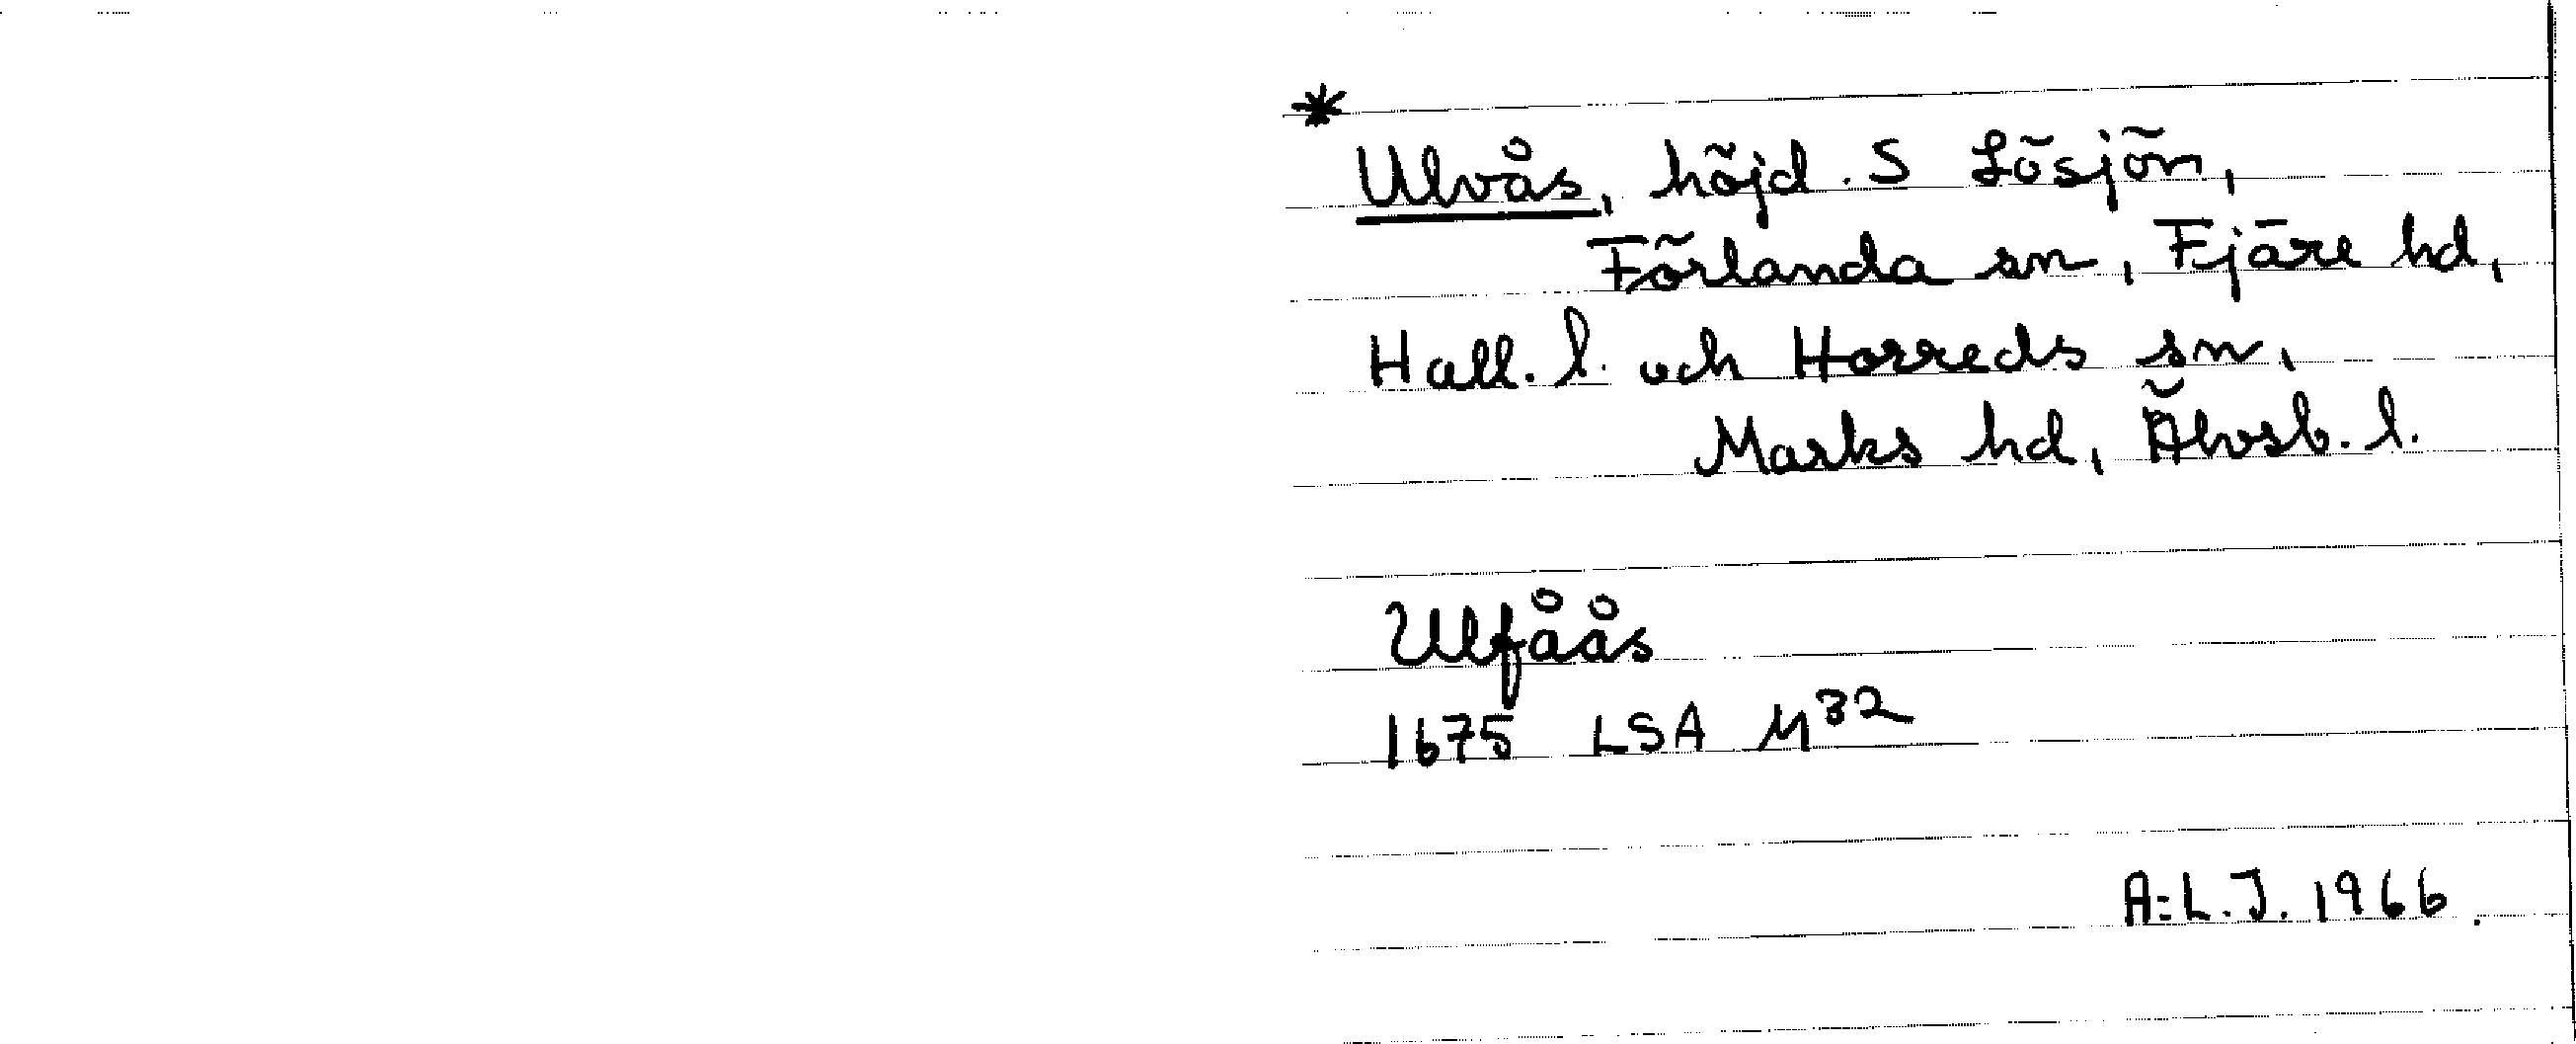 *
Ulvås, höjd. S Lösjön,
Förlanda sn, Fjäre hd,
Hall. l. och Horreds sn,
Marks hd, Älvsb. l.
Ulfåås
1675 LSA M32
A:L.J. 1966.